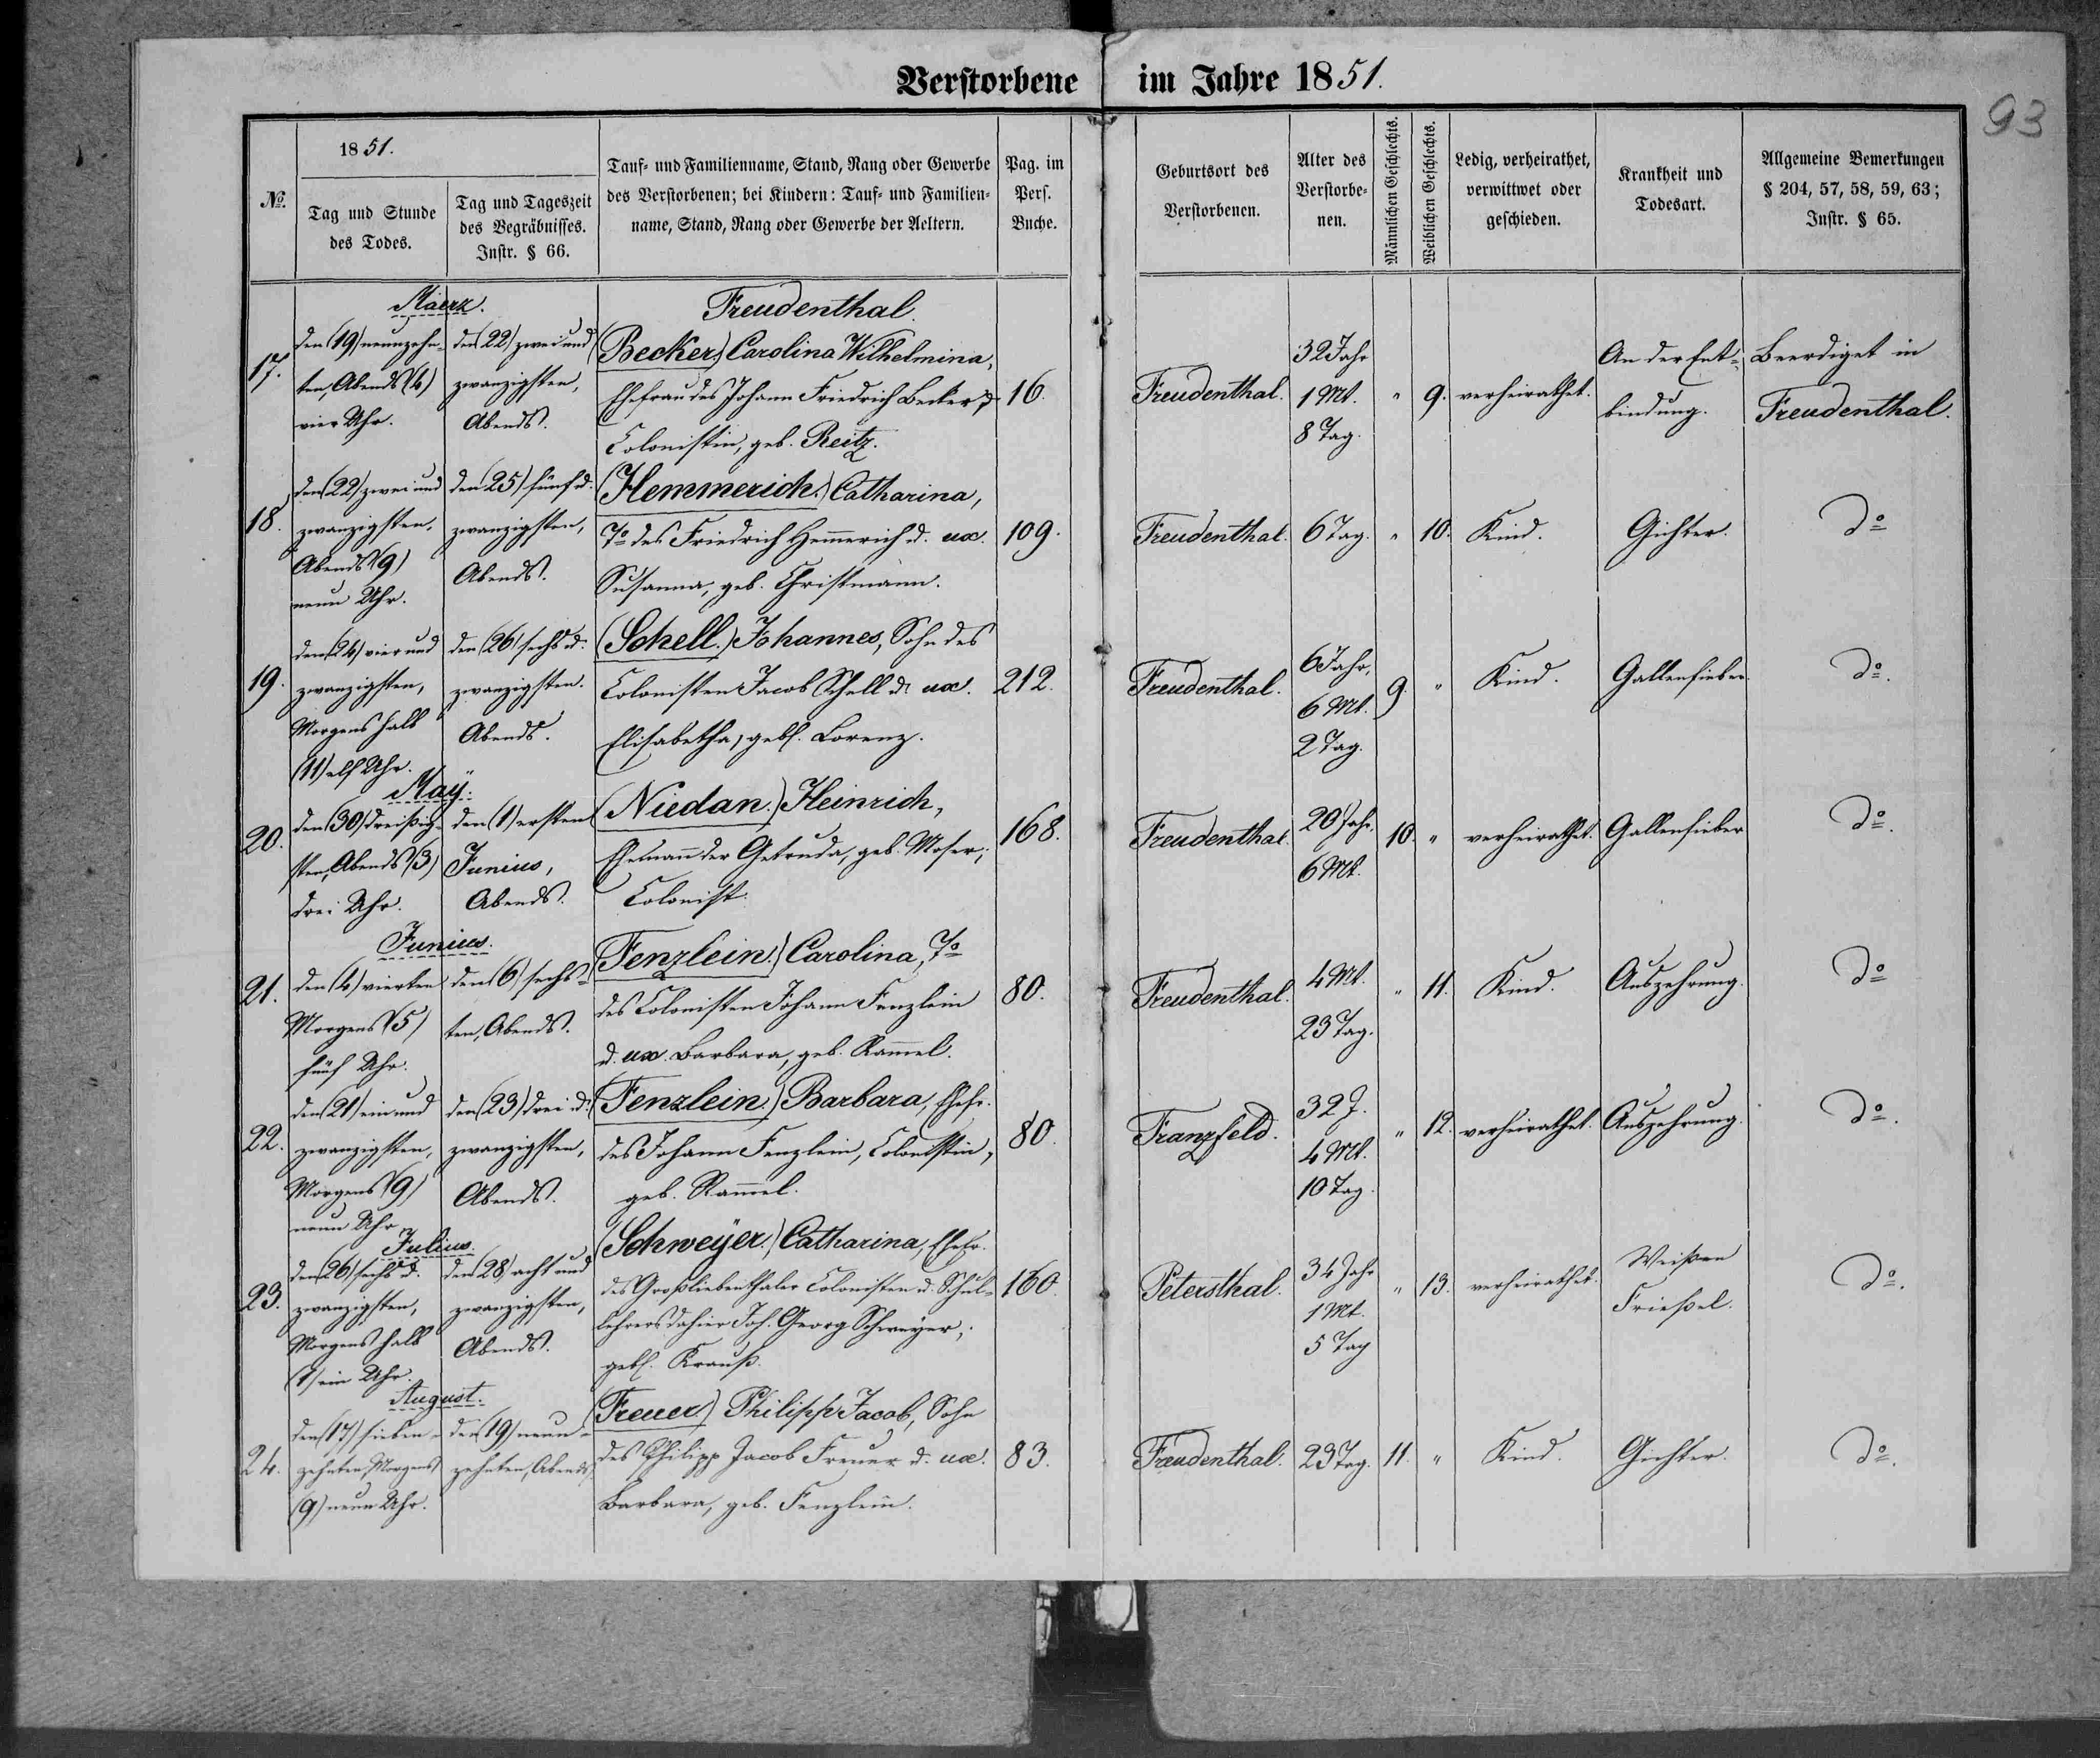 Verstorbene im Jahre 1851.
93
1851.
№.
Tag und Stunde
des Todes.
Tag und Tageszeit
des Begräbnisses.
Instr. § 66.
Tauf- und Familienname, Stand, Rang oder Gewerbe
des Verstorbenen; bei Kindern: Tauf- und Familien-
name, Stand, Rang oder Gewerbe der Aeltern.
Pag. im
Pers.
Buche.
Geburtsort des
Verstorbenen.
Alter des
Verstorbe-
nen.
Männlichen Geschlechts.
Weiblichen Geschlechts.
Ledig, verheirathet,
verwittwet oder
geschieden.
Krankheit und
Todesart.
Allgemeine Bemerkungen
§ 204, 57, 58, 59, 63;
Instr. § 65.
Maerz.
Freudenthal.
17.
den (19) neunzehn-
ten, Abends (4)
vier Uhr.
den (22) zwei und
zwanzigsten,
Abends.
(Becker.) Carolina Wilhelmina,
Ehefrau des Johann Friedrich Becker,
Colonistin, geb. Reitz.
16.
Freudenthal.
32 Jahr
1 Mt.
8 Tag.
"
9.
verheirathet.
An der Ent-
bindung.
Beerdiget in
Freudenthal.
18.
den (22) zwei und
zwanzigsten,
Abends (9)
neun Uhr.
den (25) fünf u.
zwanzigsten,
Abends.
(Hemmerich.) Catharina,
To des Friedrich Hemerich u. ux.
Susanna, geb. Christmann.
109.
Freudenthal.
6 Tag.
"
10.
Kind.
Gichter.
do
19.
den (24) vier und
zwanzigsten,
Morgens halb
(11) elf Uhr.
den (26) sechs u.
zwanzigsten.
Abends.
(Schell.) Johannes, Sohn des
Colonisten Jacob Schell u. ux.
Elisabetha, geb. Lorenz.
212.
Freudenthal.
6 Jahr,
6 Mt.
2 Tag.
9.
"
Kind.
Gallenfieber.
do.
May.
20.
den (30) dreißig-
sten, Abends (3)
drei Uhr.
den (1) ersten
Junius,
Abends.
(Niedan.) Heinrich,
Ehemann der Getruda, geb. Moser,
Colonist.
168.
Freudenthal.
20 Jahr.
6 Mt.
10.
"
verheirathet.
Gallenfieber
do.
Junius.
21.
den (4) vierten
Morgens (5)
fünf Uhr.
den (6) sechs-
ten, Abends.
(Fenzlein.) Carolina, To
des Colonisten Johann Fenzlein
u. ux. Barbara, geb. Ramel.
80.
Freudenthal.
4 Mt.
23 Tag.
"
11.
Kind.
Auszehrung.
do
22.
den (21) ein und
zwanzigsten,
Morgens (9)
neun Uhr
den (23) drei u.
zwanzigsten,
Abends.
(Fenzlein.) Barbara, Ehefr.
des Johann Fenzlein, Colonistin,
geb. Ramel.
80.
Franzfeld.
32 J.
4 Mt.
10 Tag.
"
12.
verheirathet.
Auszehrung.
do.
Julius.
23.
den (26) sechs u.
zwanzigsten,
Morgens halb
(1) ein Uhr.
den (28) acht und
zwanzigsten,
Abends.
(Schweÿer.) Catharina, Ehefr.
des Großliebenthaler Colonisten u. Schul-
lehrers dahier Joh. Georg Schweÿer,
geb. Krauß.
160.
Petersthal.
34 Jahr
1 Mt.
5 Tag
"
13.
verheirathet.
Weißen
Frießel.
do.
August.
24.
den (17) sieben-
zehnten, Morgens
(9) neun Uhr.
den (19) neun-
zehnten, Abends,
(Freuer.) Philipp Jacob, Sohn
des Philipp Jacob Freuer u. ux.
Barbara, geb. Fenzlein.
83.
Freudenthal.
23 Tag.
11.
"
Kind.
Gichter.
do.